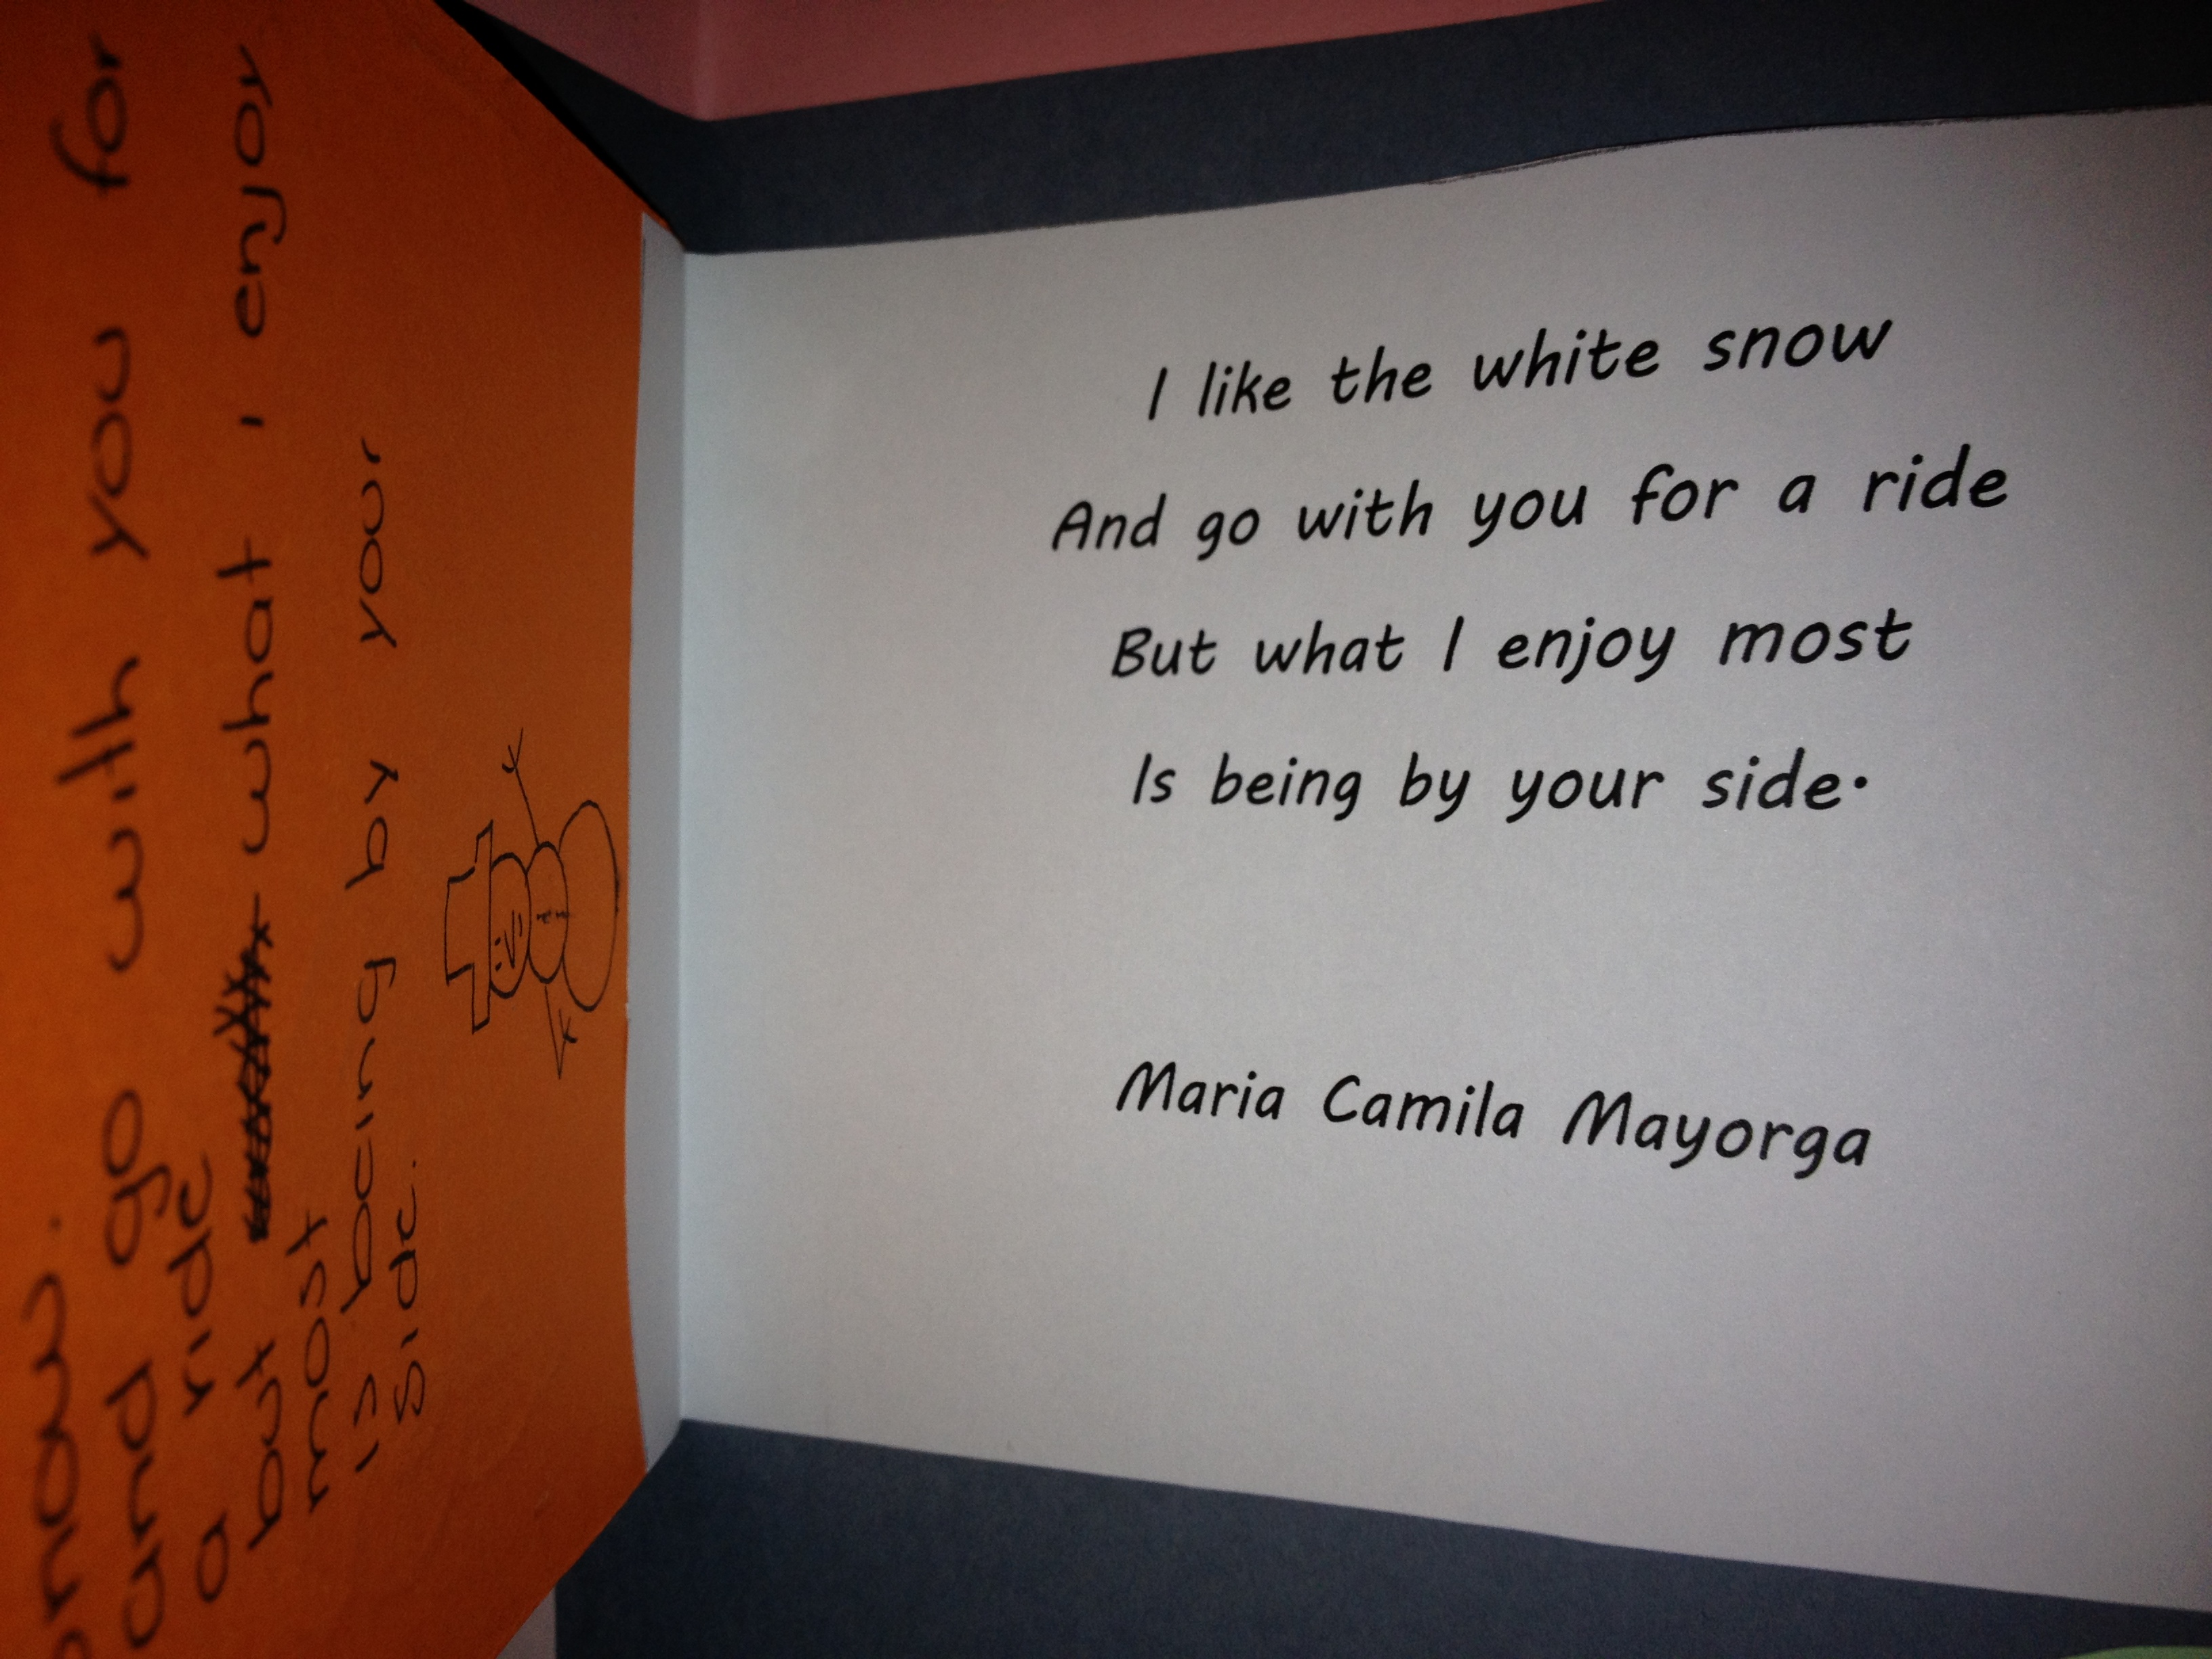 I like the white snow
And go with you for a ride
But what I enjoy most
Is being by your side.
Maria Camila Mayorga
snow.
and go with you for
a ride
but what i enjoy
most
is being by your
side.